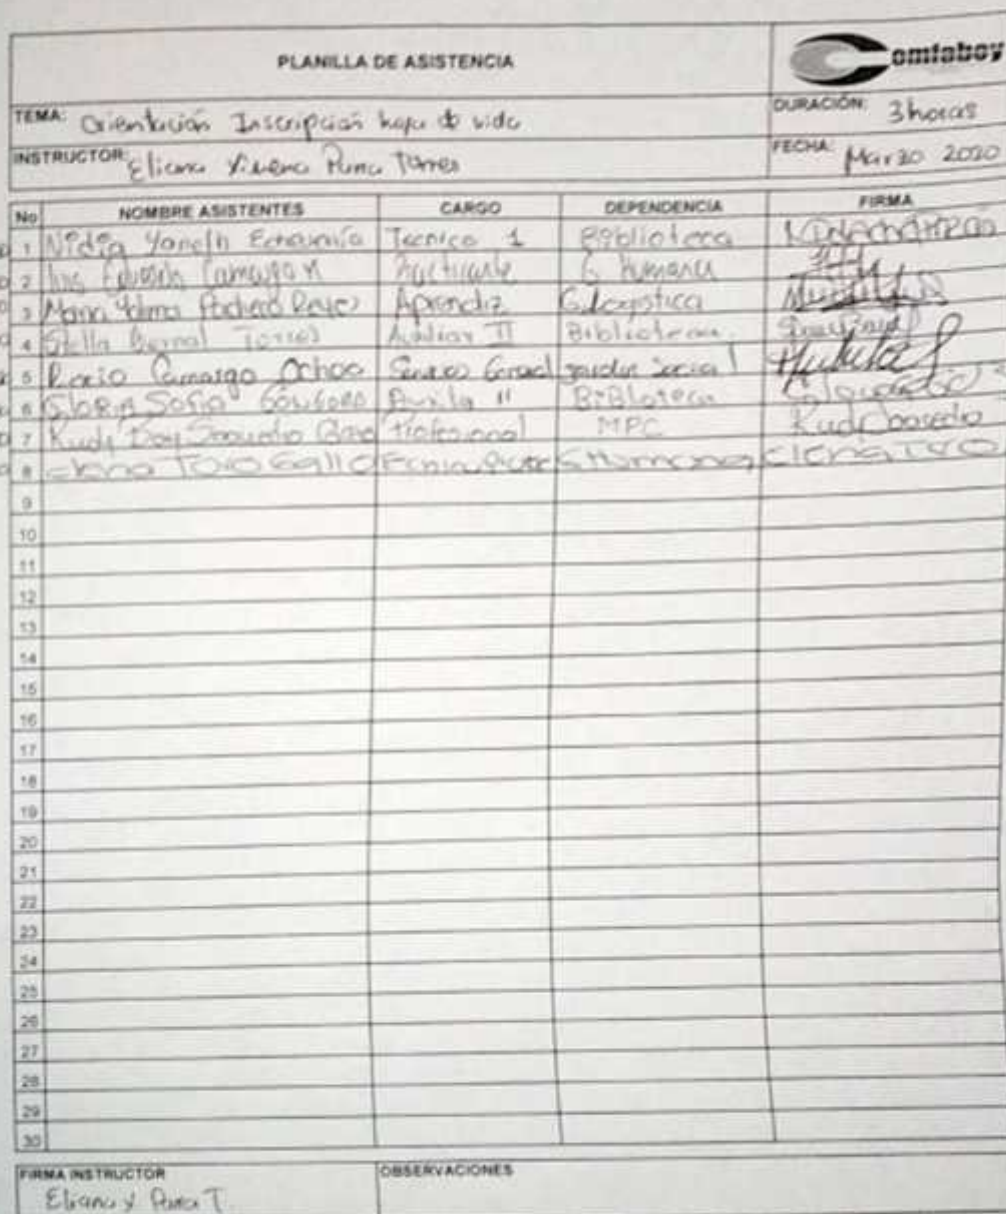 PLANILLA DE ASISTENCIA
Comfaboy
TEMA: Orientación Inscripción hoja de vida
DURACIÓN: 3 horas
INSTRUCTOR: Eliana Ximena Torres
FECHA: Marzo 2020
No NOMBRE ASISTENTES CARGO DEPENDENCIA FIRMA
1 Nidia Yaneth Echavarría Tecnico 1 Biblioteca
2 Eduardo Camargo M G Humana
3 Maria Pacheco Reyes Aprendiz G Logistica
4 Stella Bernal Torres Auxiliar II Biblioteca
5 Rocio Camargo Ochoa Servicio General jardin Social
6 Gloria Sofia II BiBlioteca
7 Rudy Saavedra Profesional MPC Rudy Saavedra
8 Toro Gallo G Humana Toro
9
10
11
12
13
14
15
16
17
18
19
20
21
22
23
24
25
26
27
28
29
30
FIRMA INSTRUCTOR OBSERVACIONES
Eliana X T